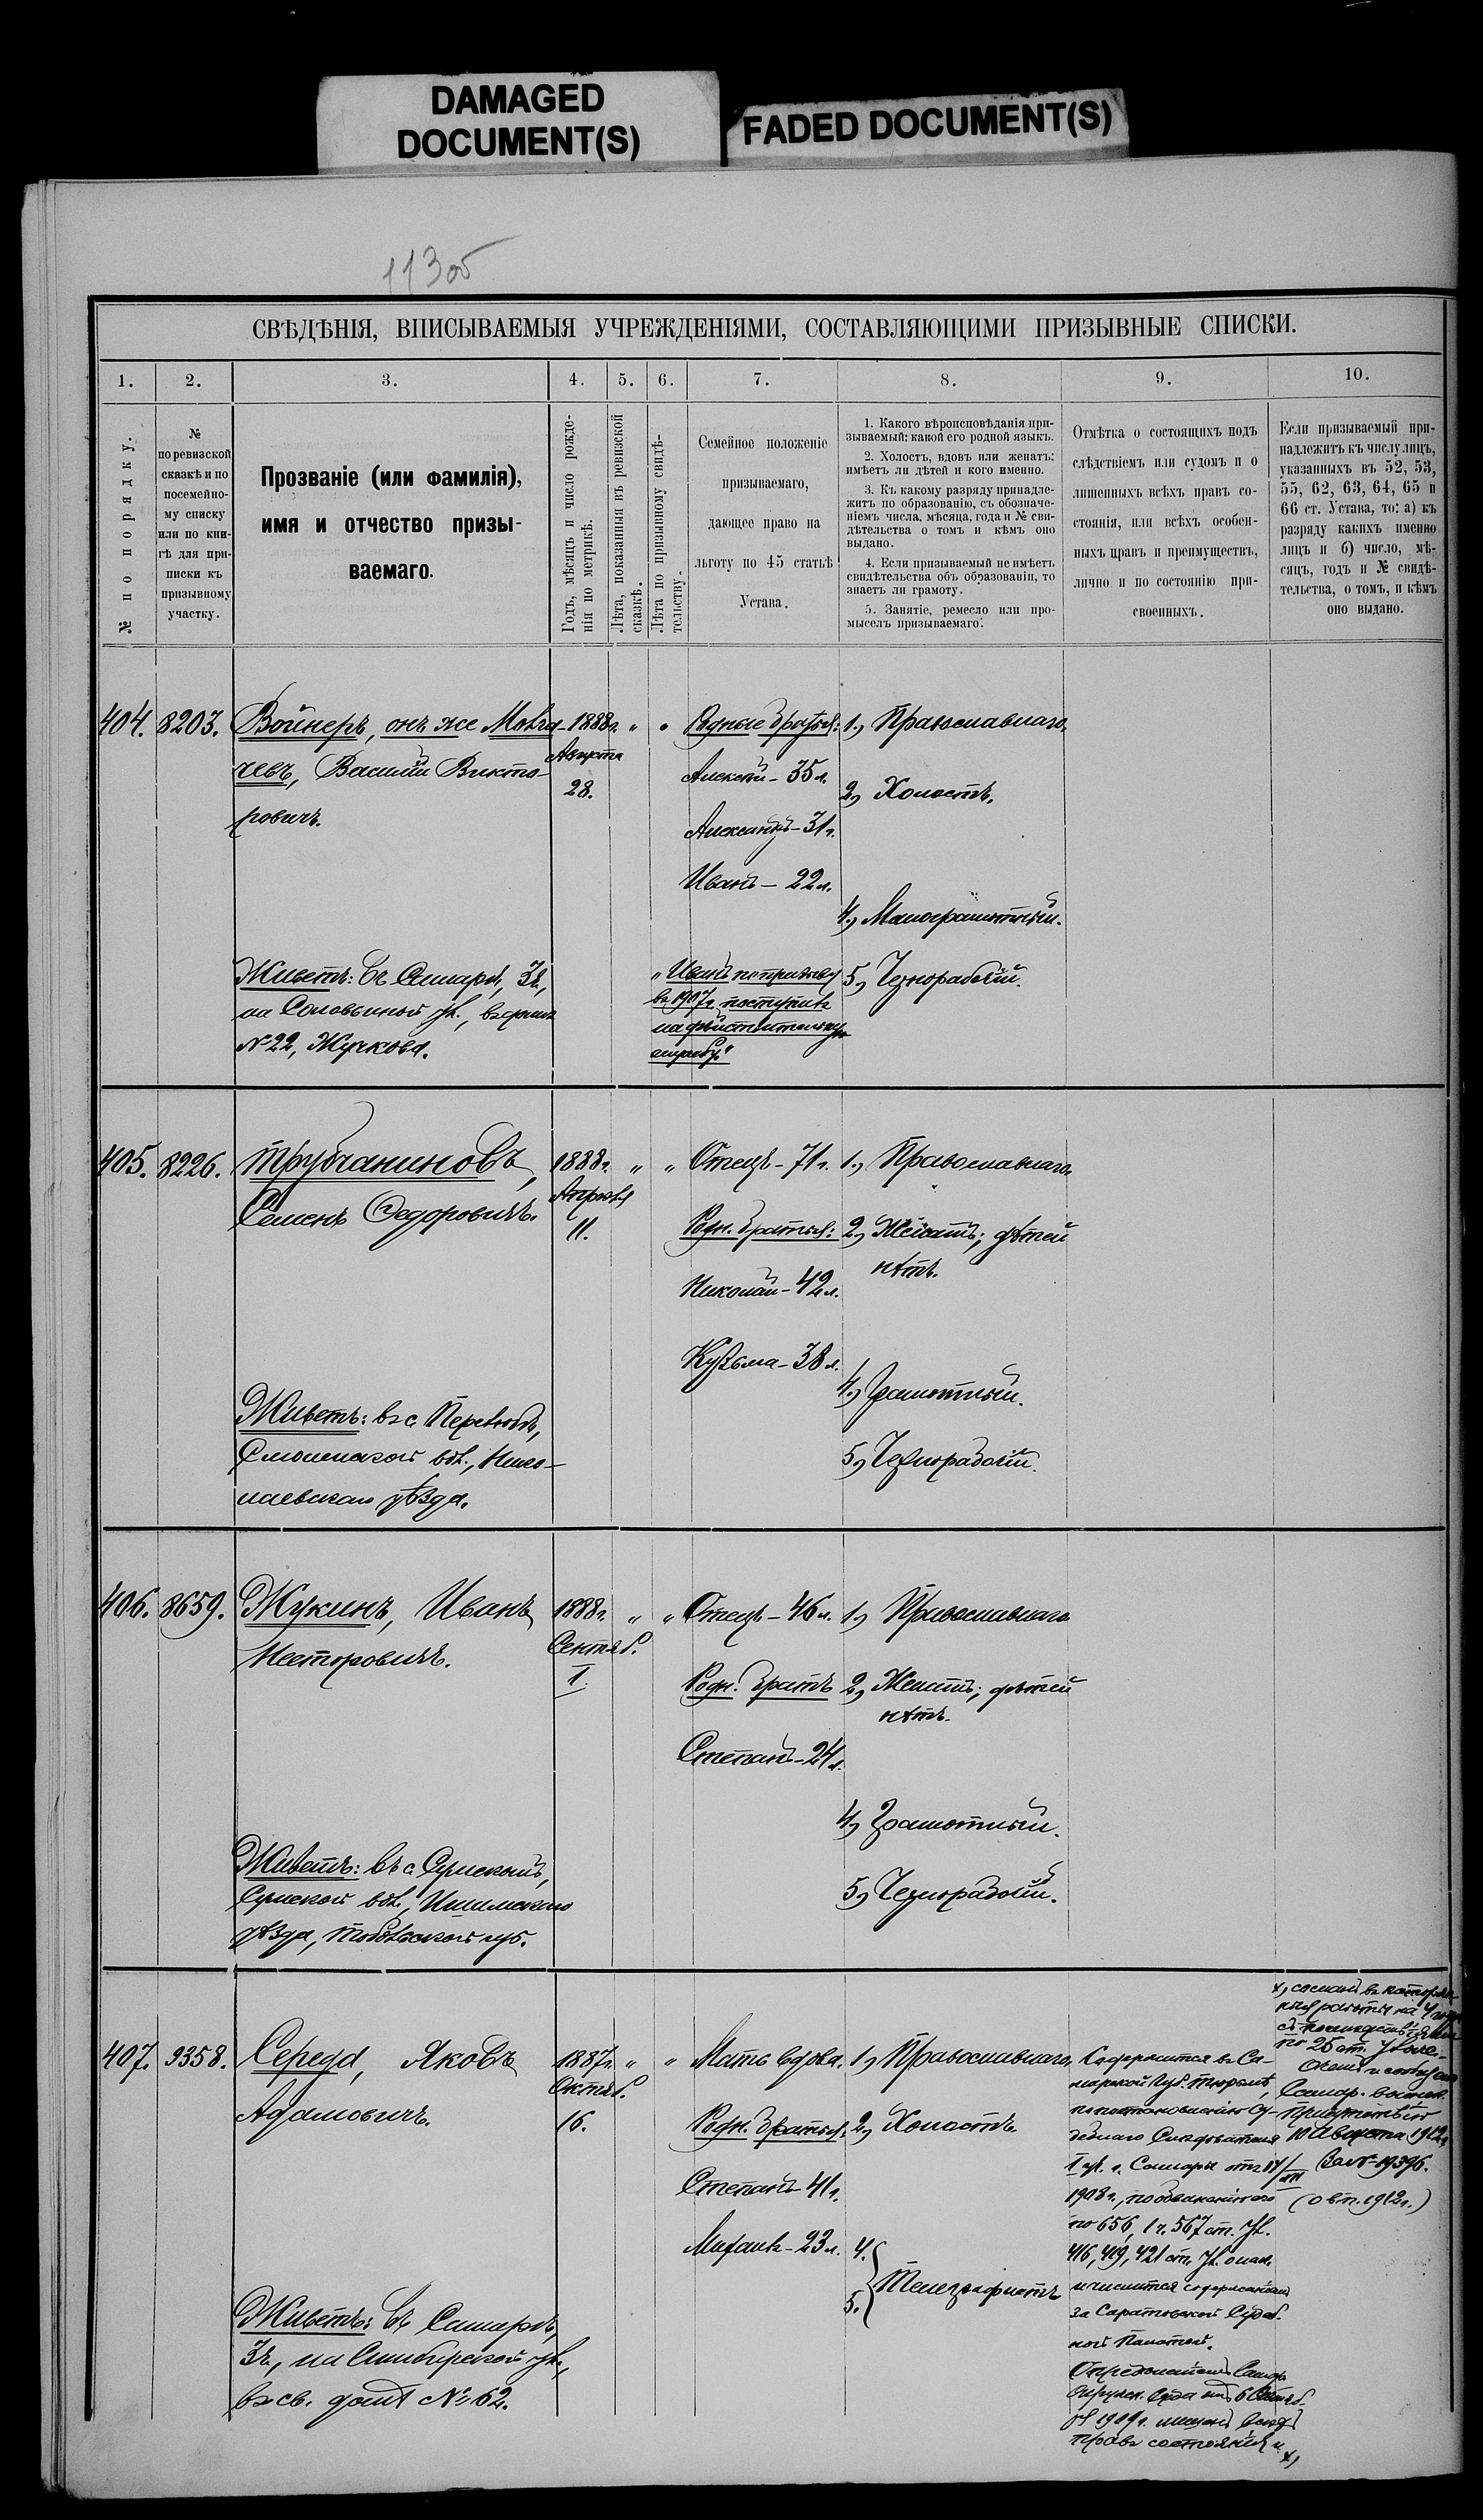 DAMAGED
DOCUMENT(S)
FADED DOCUMENT(S)
113об
СВѢДѢНІЯ, ВПИСЫВАЕМЫЯ УЧРЕЖДЕНІЯМИ, СОСТАВЛЯЮЩИМИ ПРИЗЫВНЫЕ СПИСКИ.
1.
2.
3.
4.
5.
6.
7.
8.
9.
10.
№ по порядку.
№
по ревизской
сказкѣ и по
посемейно-
му списку
или по кни-
гѣ для при-
писки къ
призывному
участку.
Прозваніе (или фамилія),
имя и отчество призы-
ваемаго.
Годъ, мѣсяцъ и число рожде-
нія по метрикѣ.
Лѣта, показанныя въ ревизской
сказкѣ.
Лѣта по призывному свидѣ-
тельству.
Семейное положеніе
призываемаго,
дающее право на
льготу по 45 статьѣ
Устава.
1. Какого вѣроисповѣданія при-
зываемый: какой его родной языкъ.
2. Холостъ, вдовъ или женатъ:
имѣетъ ли дѣтей и кого именно.
3. Къ какому разряду принадле-
житъ по образованію, съ обозначе-
ніемъ числа, мѣсяца, года и № сви-
дѣтельства о томъ и кѣмъ оно
выдано.
4. Если призываемый не имѣетъ
свидѣтельства объ образованіи, то
знаетъ ли грамоту.
5. Занятіе, ремесло или про-
мыселъ призываемаго.
Отмѣтка о состоящихъ подъ
слѣдствіемъ или судомъ и о
лишенныхъ всѣхъ правъ со-
стоянія, или всѣхъ особен-
ныхъ правъ и преимуществъ,
лично и по состоянію при-
своенныхъ.
Если призываемый при-
надлежитъ къ числу лицъ,
указанныхъ въ 52, 53,
55, 62, 63, 64, 65 и
66 ст. Устава, то: а) къ
разряду какихъ именно
лицъ и б) число, мѣ-
сяцъ, годъ и № свидѣ-
тельства, о томъ, и кѣмъ
оно выдано.
404.
8203.
Войнеръ, онъ же Молга-
чевъ, Василій Викто-
ровичъ.
Живетъ: Въ Самарѣ, 3ч.,
на Соловьиной ул., въ домѣ
№ 22, Жучкова.
1888г.
Августа
28.
"
"
Родные братья:
Алексѣй - 35л.
Александръ - 31г.
Иванъ - 22л.
"Иванъ по призыву
въ 1907г. поступилъ
на дѣйствительную
службу."
1, Православнаго.
2, Холостъ.
4, Малограмотный.
5, Чернорабочій.
405.
8226.
Трубчаниновъ,
Семенъ Ѳедоровичъ.
Живетъ: въ с. Перелюбѣ,
Смоленской вол., Нико-
лаевскаго уѣзда.
1888г.
Апрѣля
11.
"
"
Отецъ - 71г.
Родн. братья:
Николай - 42л.
Кузьма - 38л.
1, Православнаго.
2, Женатъ; дѣтей
нѣтъ.
4, Грамотный.
5, Чернорабочій.
406.
8659.
Жукинъ, Иванъ
Несторовичъ.
Живетъ: въ с. Сумскомъ,
Сумской вол., Ишимскаго
уѣзда, Тобольской губ.
1888г.
Сентяб.
1.
"
"
Отецъ - 46л.
Родн. братъ
Степанъ - 24г.
1, Православнаго
2, Женатъ; дѣтей
нѣтъ.
4, Грамотный.
5, Чернорабочій.
407.
9358.
Середа, Яковъ
Адамовичъ.
Живетъ: Въ Самарѣ,
3ч., на Симбирской ул.,
въ св. домѣ № 62.
1887г.
Октяб.
16.
"
"
Мать вдова.
Родн. братья:
Степанъ - 41г.
Михаилъ - 23л.
1, Православнаго.
2, Холостъ.
4.
5.
Телеграфистъ
Содержится въ Са-
марской Губ. тюрьмѣ,
по постановленію Су-
дебнаго Слѣдователя
1 уч. г. Самары отъ
1908г., по обвиненію его
по 656, 1ч. 567 ст. Ул.
416, 419, 421 ст. Ул. о нак.
и числится содержаніемъ
за Саратовской Судеб-
ной Палатой.
Опредѣленіемъ Самар.
Окружн. Суда отъ 6 Октяб-
ря 1909г. лишенъ всѣхъ
правъ состоянія и х)
х) сосланъ въ каторж-
ныя работы на 4 года
съ послѣдствіями
по 25 ст. Улож.
Самар. воинск.
Присутствію
10 Августа 1912г.
За № 19396.
(о вп. 1912г.)